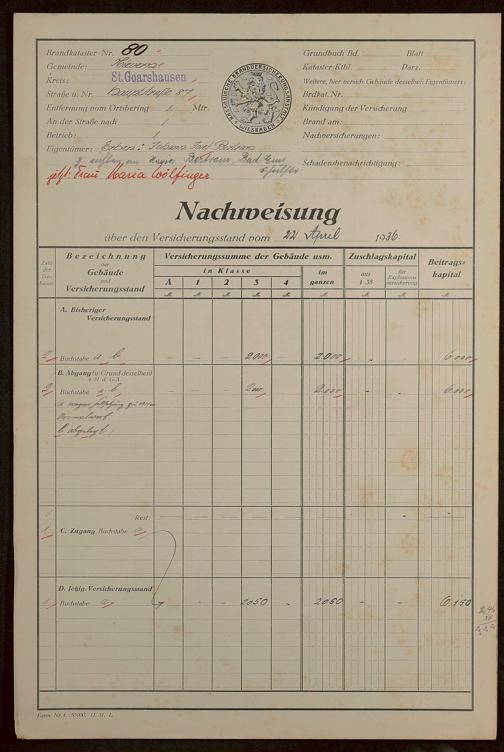 Brandkataster Nr. 80
Gemeinde:
Kreis: St.Goarshausen
Straße u. Nr. Hauptstraße 87
Entfernung vom Ortsbering / Mtr.
An der Straße nach /
Betrieb: /
Eigentümer: Erben: Johann Josef Bertram
Bertram, Bad Ems
jetzt: Frau Maria Wölfinger
NASSAUISCHE BRANDVERSICHERUNGSANSTALT WIESBADEN
Grundbuch Bd. Blatt
Kataster Ktbl. Parz.
Weitere, hier versich. Gebäude desselben Eigentümers:
Brdkat. Nr.
Kündigung der Versicherung
Brand am:
Nachversicherungen:
Schadensbenachrichtigung:
Nachweisung
über den Versicherungsstand vom 22 April 1936.
Zahl der Gebäude
Bezeichnung der Gebäude und Versicherungsstand
Versicherungssumme der Gebäude usw.
in Klasse
A 1 2 3 4
im ganzen
Zuschlagskapital
aus § 35
für Explosionsversicherung
Beitragskapital
A. Bisheriger Versicherungsstand
2 Buchstabe a b - - - 2000 - 2000 - - 6000
B. Abgang (u. Grund desselben)
§ 31 d. G.A.
2 Buchstabe a, b - - - 2000 - 2000 - - 6000
b abgelegt.
Rest:
1 C. Zugang Buchstabe a
D. Jetzig. Versicherungsstand
1 Buchstabe a - - 2050 - 2050 - - 6150
Form. Nr. 1. 50000. 11. 31. L.